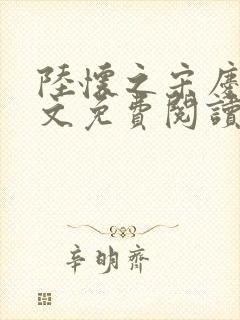 陸懷之宋慶
文免費閱讀
辛明齊